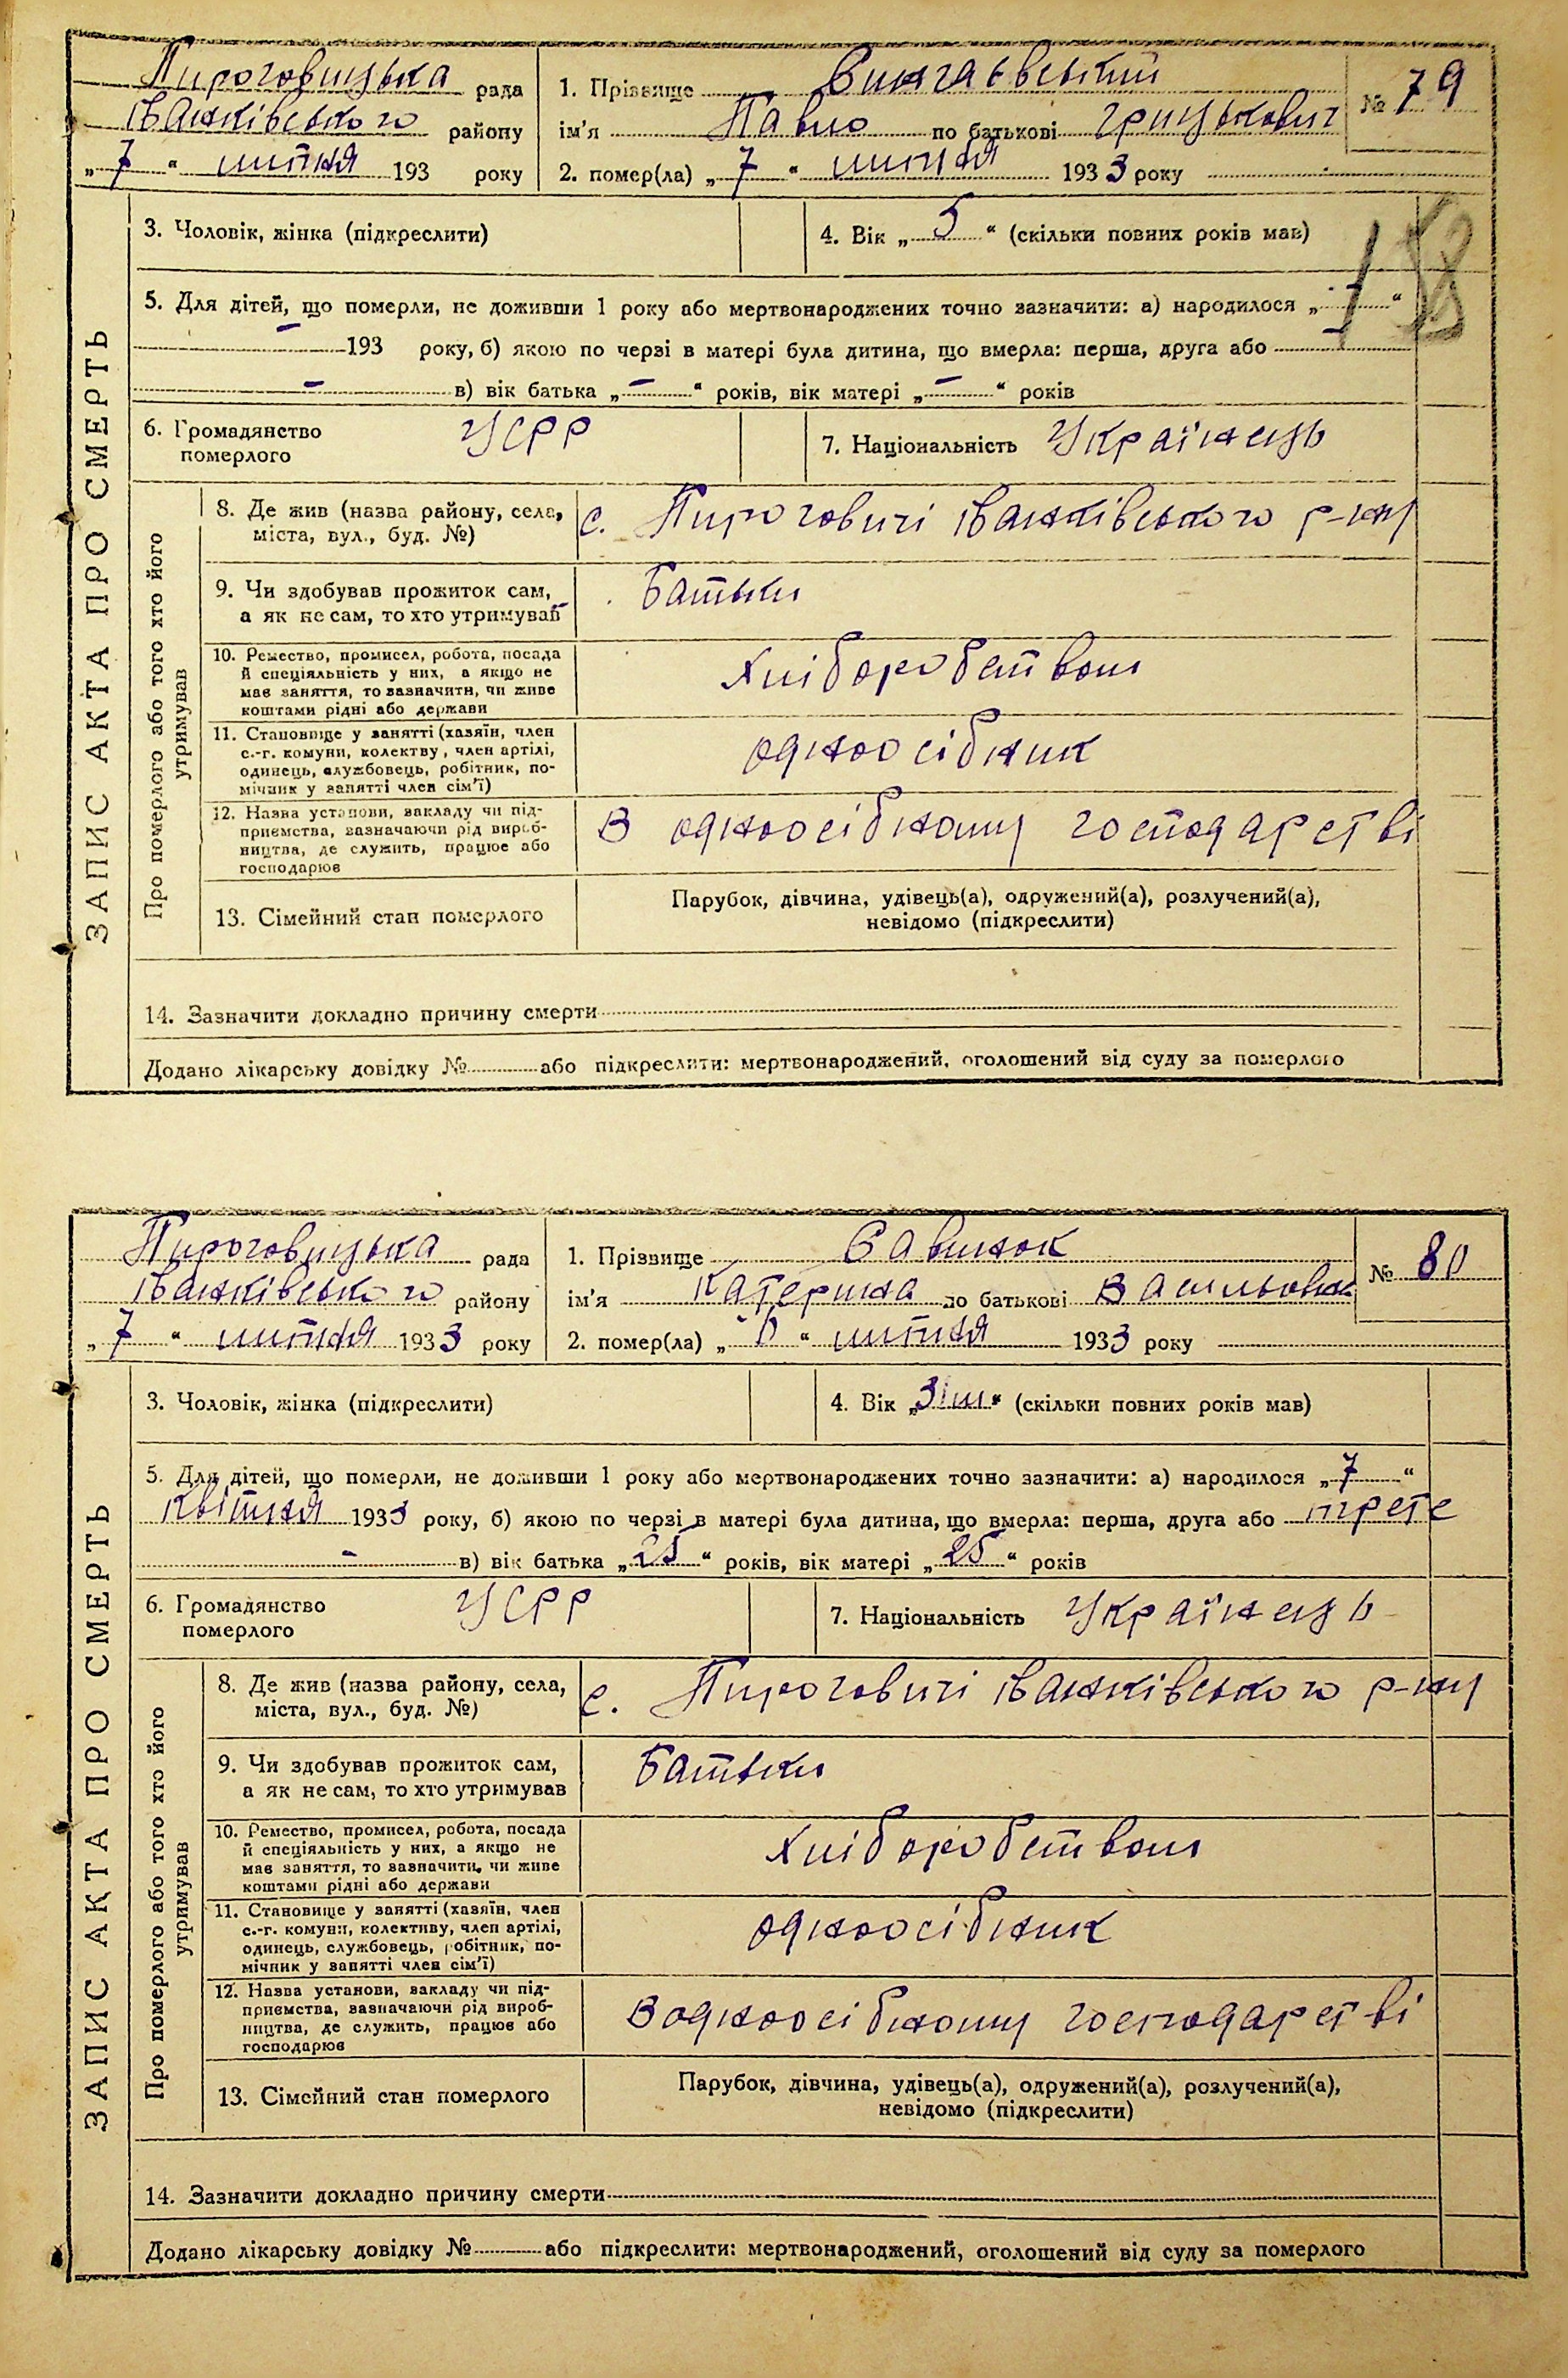 Пироговицька рада
Іванківського району
„7“ липня 193 року
1. Прізвище Сингаєвський
ім'я Павло по батькові Грицькович
2. помер(ла) „7“ липня 1933 року
№ 79
ЗАПИС АКТА ПРО СМЕРТЬ
3. Чоловік, жінка (підкреслити)
4. Вік „5“ (скільки повних років мав)
5. Для дітей, що померли, не доживши 1 року або мертвонароджених точно зазначити: а) народилося „-“
- 193 року, б) якою по черзі в матері була дитина, що вмерла: перша, друга або
- в) вік батька „-“ років, вік матері „-“ років
6. Громадянство померлого УСРР
7. Національність Українець
Про померлого або того хто його утримував
8. Де жив (назва району, села, міста, вул., буд. №) с. Пироговичі Іванківського р-ну
9. Чи здобував прожиток сам, а як не сам, то хто утримував Батьки
10. Ремество, промисел, робота, посада й спеціяльність у них, а якщо не має заняття, то зазначити, чи живе коштами рідні або держави Хліборобством
11. Становище у занятті (хазяїн, член с.-г. комуни, колективу, член артілі, одинець, службовець, робітник, помічник у занятті член сім'ї) одноосібник
12. Назва установи, закладу чи підприємства, зазначаючи рід виробництва, де служить, працює або господарює В одноосібному господарстві
13. Сімейний стан померлого
Парубок, дівчина, удівець(а), одружений(а), розлучений(а),
невідомо (підкреслити)
14. Зазначити докладно причину смерти
Додано лікарську довідку № або підкреслити: мертвонароджений, оголошений від суду за померлого
Пироговицька рада
Іванківського району
„7“ липня 1933 року
1. Прізвище Савинок
ім'я Катерина по батькові Васильовна
2. помер(ла) „6“ липня 1933 року
№ 80
ЗАПИС АКТА ПРО СМЕРТЬ
3. Чоловік, жінка (підкреслити)
4. Вік „3 м“ (скільки повних років мав)
5. Для дітей, що померли, не доживши 1 року або мертвонароджених точно зазначити: а) народилося „7“
квітня 1933 року, б) якою по черзі в матері була дитина, що вмерла: перша, друга або трете
- в) вік батька „25“ років, вік матері „25“ років
6. Громадянство померлого УСРР
7. Національність Українець
Про померлого або того хто його утримував
8. Де жив (назва району, села, міста, вул., буд. №) с. Пироговичі Іванківського р-ну
9. Чи здобував прожиток сам, а як не сам, то хто утримував Батьки
10. Ремество, промисел, робота, посада й спеціяльність у них, а якщо не має заняття, то зазначити, чи живе коштами рідні або держави Хліборобством
11. Становище у занятті (хазяїн, член с.-г. комуни, колективу, член артілі, одинець, службовець, робітник, помічник у занятті член сім'ї) одноосібник
12. Назва установи, закладу чи підприємства, зазначаючи рід виробництва, де служить, працює або господарює В одноосібному господарстві
13. Сімейний стан померлого
Парубок, дівчина, удівець(а), одружений(а), розлучений(а),
невідомо (підкреслити)
14. Зазначити докладно причину смерти
Додано лікарську довідку № або підкреслити: мертвонароджений, оголошений від суду за померлого